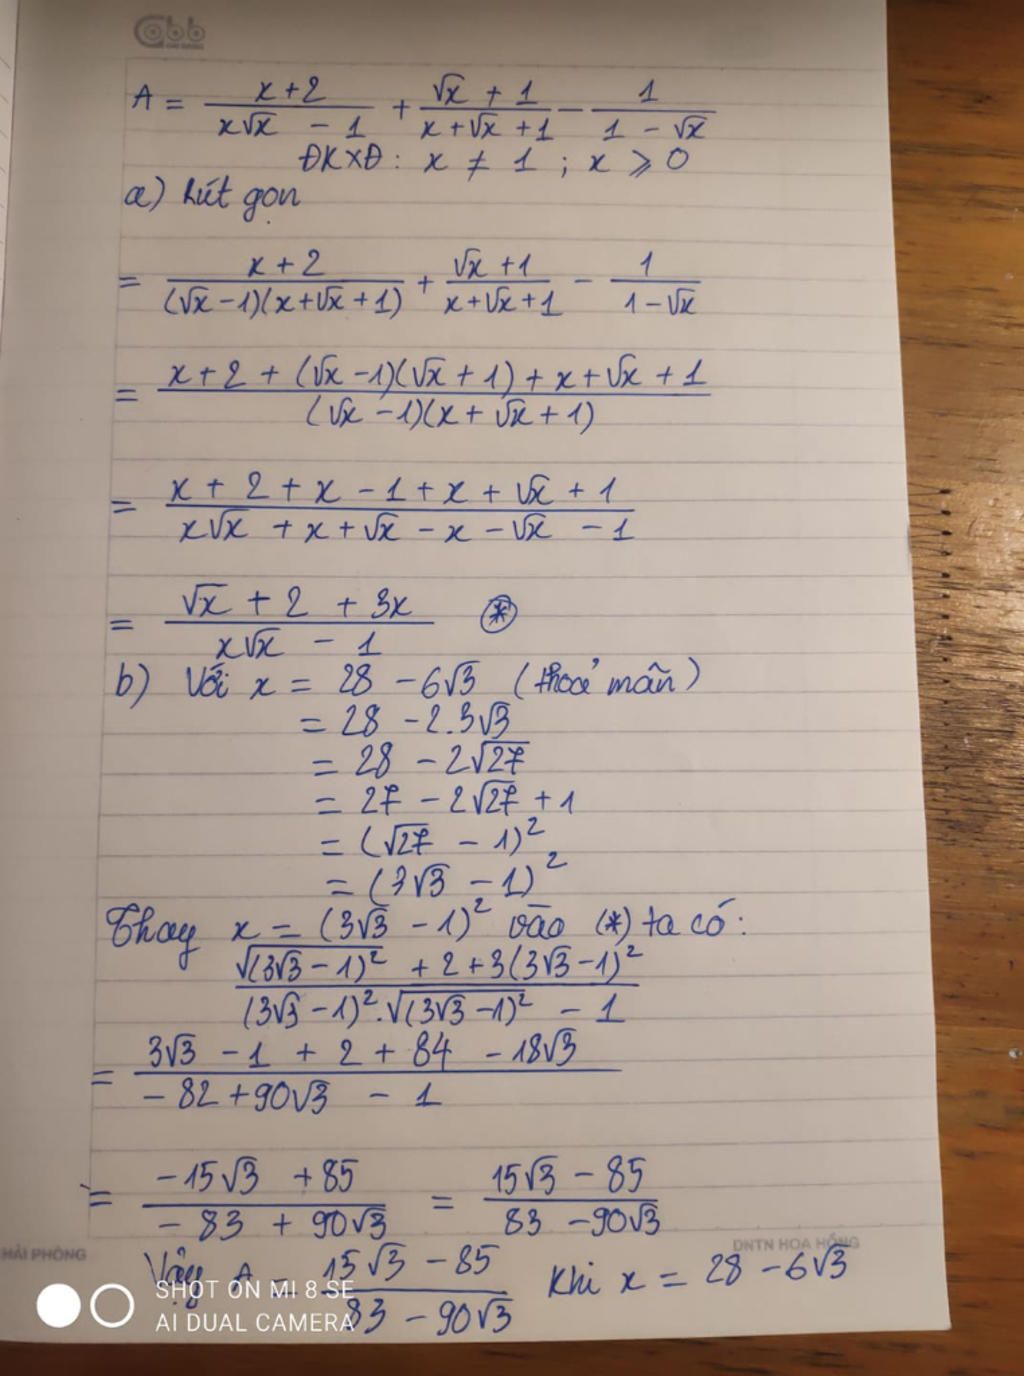 abb
A = (x + 2)/(x√x - 1) + (√x + 1)/(x + √x + 1) - 1/(1 - √x)
ĐKXĐ: x ≠ 1 ; x ⩾ 0
a) Rút gọn
= (x + 2)/((√x - 1)(x + √x + 1)) + (√x + 1)/(x + √x + 1) - 1/(1 - √x)
= (x + 2 + (√x - 1)(√x + 1) + x + √x + 1)/((√x - 1)(x + √x + 1))
= (x + 2 + x - 1 + x + √x + 1)/(x√x + x + √x - x - √x - 1)
= (√x + 2 + 3x)/(x√x - 1) (*)
b) Với x = 28 - 6√3 (thoả mãn)
= 28 - 2.3√3
= 28 - 2√27
= 27 - 2√27 + 1
= (√27 - 1)²
= (3√3 - 1)²
Thay x = (3√3 - 1)² vào (*) ta có:
(√(3√3 - 1)² + 2 + 3(3√3 - 1)²)/((3√3 - 1)².√(3√3 - 1)² - 1)
= (3√3 - 1 + 2 + 84 - 18√3)/(- 82 + 90√3 - 1)
= (-15√3 + 85)/(- 83 + 90√3) = (15√3 - 85)/(83 - 90√3)
HẢI PHÒNG
DNTN HOA HỒNG
Vậy A = (15√3 - 85)/(83 - 90√3) khi x = 28 - 6√3
SHOT ON MI 8 SE
AI DUAL CAMERA